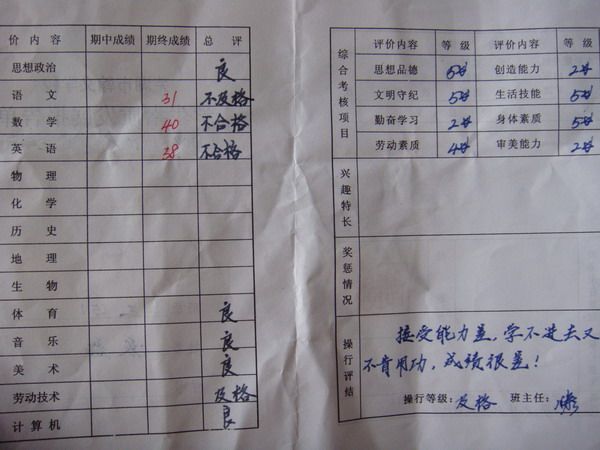 价 内 容 期中成绩 期终成绩 总 评
思想政治 良
语 文 31 不及格
数 学 40 不合格
英 语 38 不合格
物 理
化 学
历 史
地 理
生 物
体 育 良
音 乐 良
美 术 良
劳动技术 及格
计 算 机 良
综合考核项目
评价内容 等 级 评价内容 等 级
思想品德 5分 创造能力 2分
文明守纪 5分 生活技能 5分
勤奋学习 2分 身体素质 5分
劳动素质 4分 审美能力 2分
兴趣特长
奖惩情况
操行评结
接受能力差,学不进去又
不肯用功,成绩很差!
操行等级:及格 班主任: